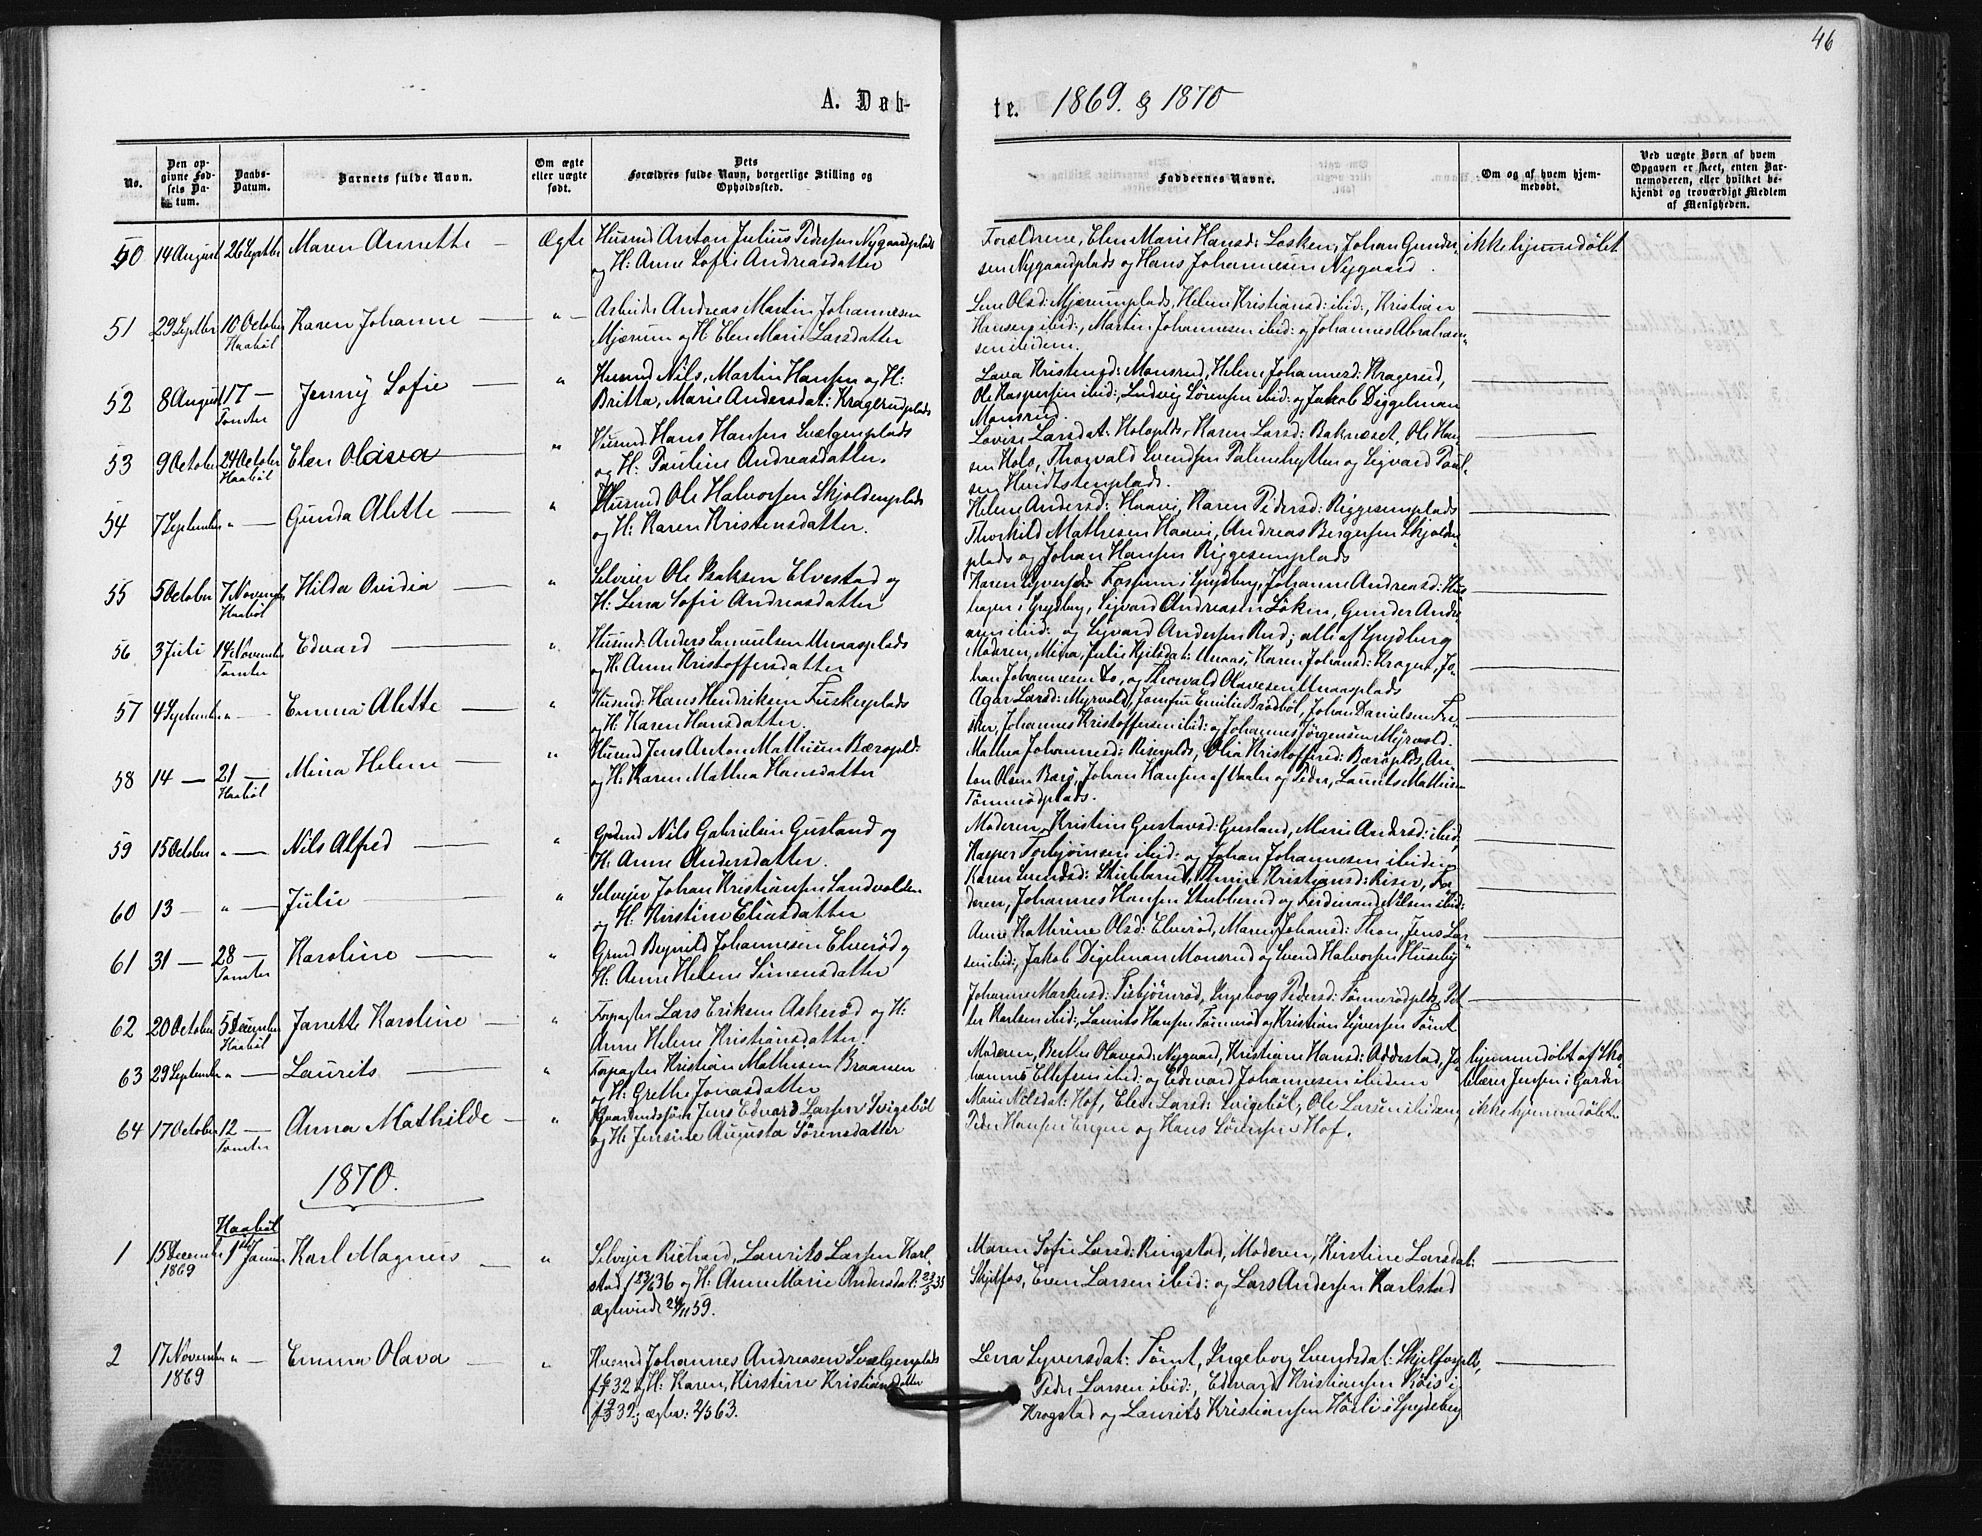 46
A. Døb-
te. 1869. & 1870
No.
Den op-
givne Fød-
sels Da-
tum.
Daabs-
Datum.
Barnets fulde Navn.
Om ægte
eller uægte
født.
Dets
Forældres fulde Navn, borgerlige Stilling og
Opholdssted.
Faddernes Navne.
Om og af hvem hjem-
medøbt.
Ved uægte Børn af hvem
Opgaven er skeet, enten Bar-
nemoderen, eller hvilket be-
kjendt og troværdigt Medlem
af Menigheden.
50 14 August 26 Septber Maren Annette — Ægte Husmd Anton Julius Pedersen Nygaardplads
og H: Anne Sofie Andreasdatter
Forældrene, Elen Marie Hansd: Losken, Johan Gunder-
sen Nygaardplads og Hans Johannesen Nygaard.
ikke hjemmedøbt
51 29 Septbr 10 October Karen Johanne — " — Arbeider Andreas Martin Johannesen
Haabøl
Mjærum og H: Elen Marie Larsdatter
Lene Olsd: Mjærumplads, Helene Kristiansd: ibid:, Kristian
Hansen ibid:, Martin Johannesen ibid: og Johannes Abraham-
sen ibidem.
52 8 August 17 — Jenny Sofie — " Husmd Nils Martin Hansen og H:
Tomter
Britta Marie Andersdat: Kragerudplads
Lava Kristensd: Monsrud, Helene Johannesd: Kragerud,
Ole Kaspersen ibid:, Ludvig Sørensen ibid: og Jakob Diggelman
Monsrud.
53 9 October 24 October Elen Olava — " Husmd: Hans Hansen Svælgenplads
Haabøl
og H: Pauline Andreasdatter.
Lovise Larsdat: Holsplds, Karen Larsd: Baknæset, Ole Han-
sen Hols, Thorvald Svendsen Palmehytten og Sigvard Paul-
sen
54 7 September " — Gunda Alette — " Husmd Ole Halvorsen Skjoldenplads
og H: Karen Kristensdatter.
Helene Andersd: Haavi, Karen Pedersd: Riggesumplads
Thorkild Mathiesen Haavi, Andreas Bergersen Skjolden-
plads og Johan Hansen Riggesumplads
55 5 October 7 November Hilda Ovidia — " Selveier Ole Isaksen Elvestad og
Haabøl
H: Lena Sofie Andreasdatter
Karen Syversd: Fossum i Spydberg, Johanne Andreasd:
hagen i Spydberg, Sigvard Andreasen Løken, Gunder Andre-
asen ibid: og Sigvard Andersen Rud; alle af Spydberg
56 3 Juli 14 November Edvard — " Husmd: Anders Samuelsen Unaasplads
Tomter
og H: Anne Kristoffersdatter
Moderen, Mina Julie Kjelsdat: Unaas, Karen Johansd: Kragerud, Jo-
han Johannesen do, og Thorvald Olavesen Unaasplads
57 4 September " — Emma Alette — " Husmd: Hans Hendriksen Fuskerplads
og H: Karen Hansdatter.
Agar Larsd: Myrvold, Jomfru Emilie Brødbøl, Johan Danielsen Fu-
sker, Johannes Kristoffersen ibid: og Johannes Jørgensen Myrvold.
58 14 — 21 — Mina Helene — " Husmd Jens Anton Mathisen Bærøpld:
Haabøl
og H: Karen Mathea Hansdatter
Mathea Johannesd: Riserplds, Olia Kristoffersd: Bærøplds, An-
ton Olsen Bærø, Johan Hansen af Vaaler og Peder Laurits Mathisen
Tømmerødplads.
59 15 October " — Nils Alfred — " Grdmd Nils Gabrielsen Gusland og
H: Anne Andersdatter.
Moderen, Kristine Gustavsd: Gusland, Marie Andersd: ibid,
Kasper Torbjørnsen ibid: og Johan Johannesen ibidem
60 13 — " — Julie — " Selveier Johan Kristiansen Sandvolden
og H: Kirstine Eliasdatter
Karen Svendsd: Stubberud, Thrine Kristiansd: Riser, Fa-
deren, Johannes Hansen Stubberud og Ferdinand Nilsen ibid:
61 31 — 28 — Karoline — " Grmd Beynild Johannesen Elverød og
Tomter
H: Anne Helene Simensdatter
Anne Kathrine Olsd: Elverød, Maren Johansd: Thon, Jens Lar-
sen ibid:, Jakob Digelman Monsrud og Svend Halvorsen Huseby
62 20 October 5 December Janette Karoline — " Forpagter Lars Eriksen Askerød og H:
Haabøl
Anne Helene Kristiansdatter.
Johanne Markusd: Tisbjørnrød, Ingeborg Pedersd: Tømmerødplds, Pet-
ter Karlsen ibid:, Laurits Hansen Tømmerød og Kristian Syversen Tømt
63 29 September " — Laurits — " Forpagter Kristian Mathisen Braanen
og H: Grethe Jonasdatter
Moderen, Berthe Olavesd: Nygaard, Kristiane Hansd: Addestad, Jo-
hannes Ellefsen ibid: og Edvard Johannesen ibidem
hjemmedøbt af Sko-
lelærer Jensen i Garder
64 17 October 12 — Anna Mathilde — " Gaardmdssøn Jens Edvard Larsen Svigebøl
Tomter
og H: Jensine Augusta Sørensdatter
Marie Nilsdat: Hof, Elen Larsd: Svigebøl, Ole Larsen ibidem,
Peder Hansen Engen og Hans Sørensen Hof.
ikke hjemmedøbt
1870.
Haabøl
1 15 December 1ste Januar Karl Magnus — " Selveier Richard Laurits Larsen Karl-
1869
stad f 29/6 36 og H: Anne Marie Andersdat: 23/5 35
Ægteviede 24/11 59.
Maren Sofie Larsd: Ringstad, Moderen, Kirstine Larsdat:
Skjelfos, Even Larsen ibid: og Lars Andersen Karlstad
2 17 November " — Emma Olava — " Husmd Johannes Andreasen Svælgenplads
1869
32 & H: Karen Kirstine Kristiansdatter
32; ægtev: 2/5 63.
Lena Syversdat: Tømt, Ingeborg Svendsdat: Skjelfosplds,
Peder Larsen ibid:, Edvard Kristiansen Røis i
Krogstad og Laurits Kristiansen Høsli i Spydeberg